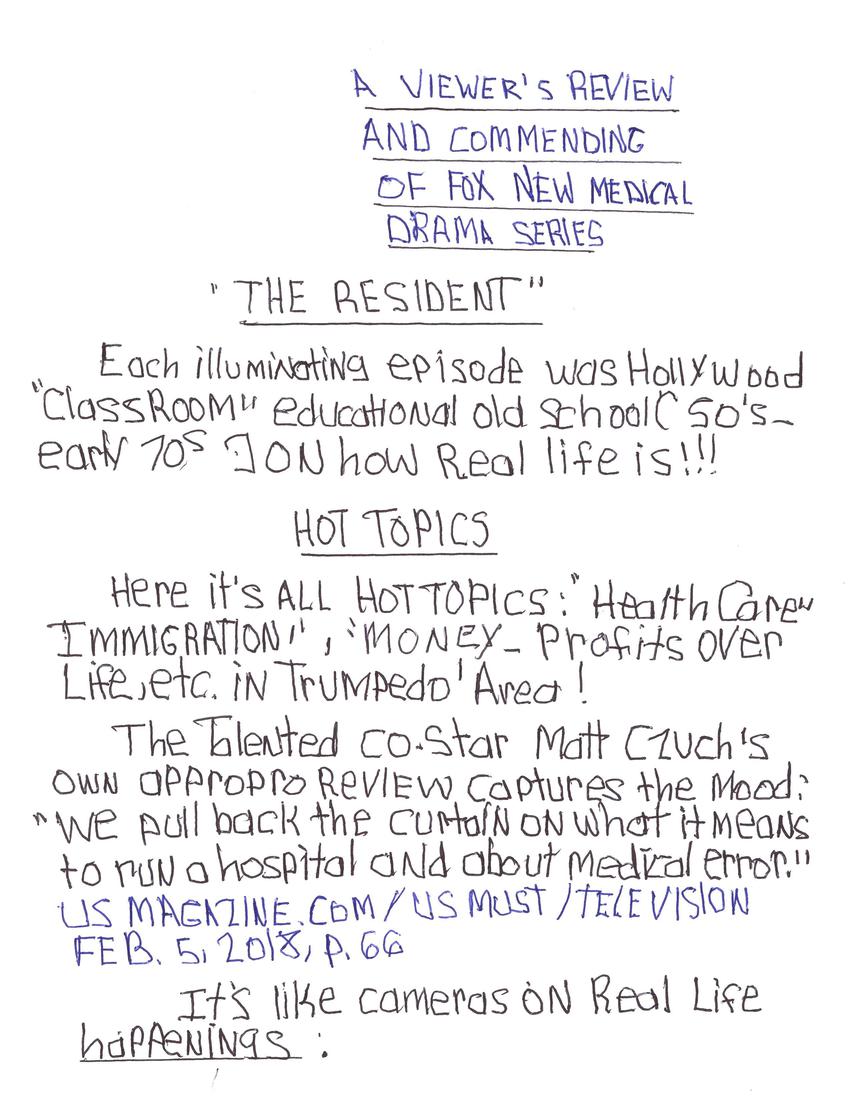 A VIEWER'S REVIEW
AND COMMENDING
OF FOX NEW MEDICAL
DRAMA SERIES
"THE RESIDENT"
Each illuminating episode was Hollywood
"ClassRoom" educational old School (50's-
early 70s) ON how Real life is!!!
HOT TOPICS
Here it's ALL HOT TOPICS: "Health Care"
IMMIGRATION", "MONEY- Profits over
Life, etc. iN Trumpedo' Area!
The Talented co-Star Matt Czuch's
OWN appropro REVIEW captures the Mood:
"We pull back the curtain on what it means
to run a hospital and about medical error."
US MAGAZINE.COM/US MUST/TELEVISION
FEB. 5, 2018, P. 66
It's like cameras oN Real Life
happenings :